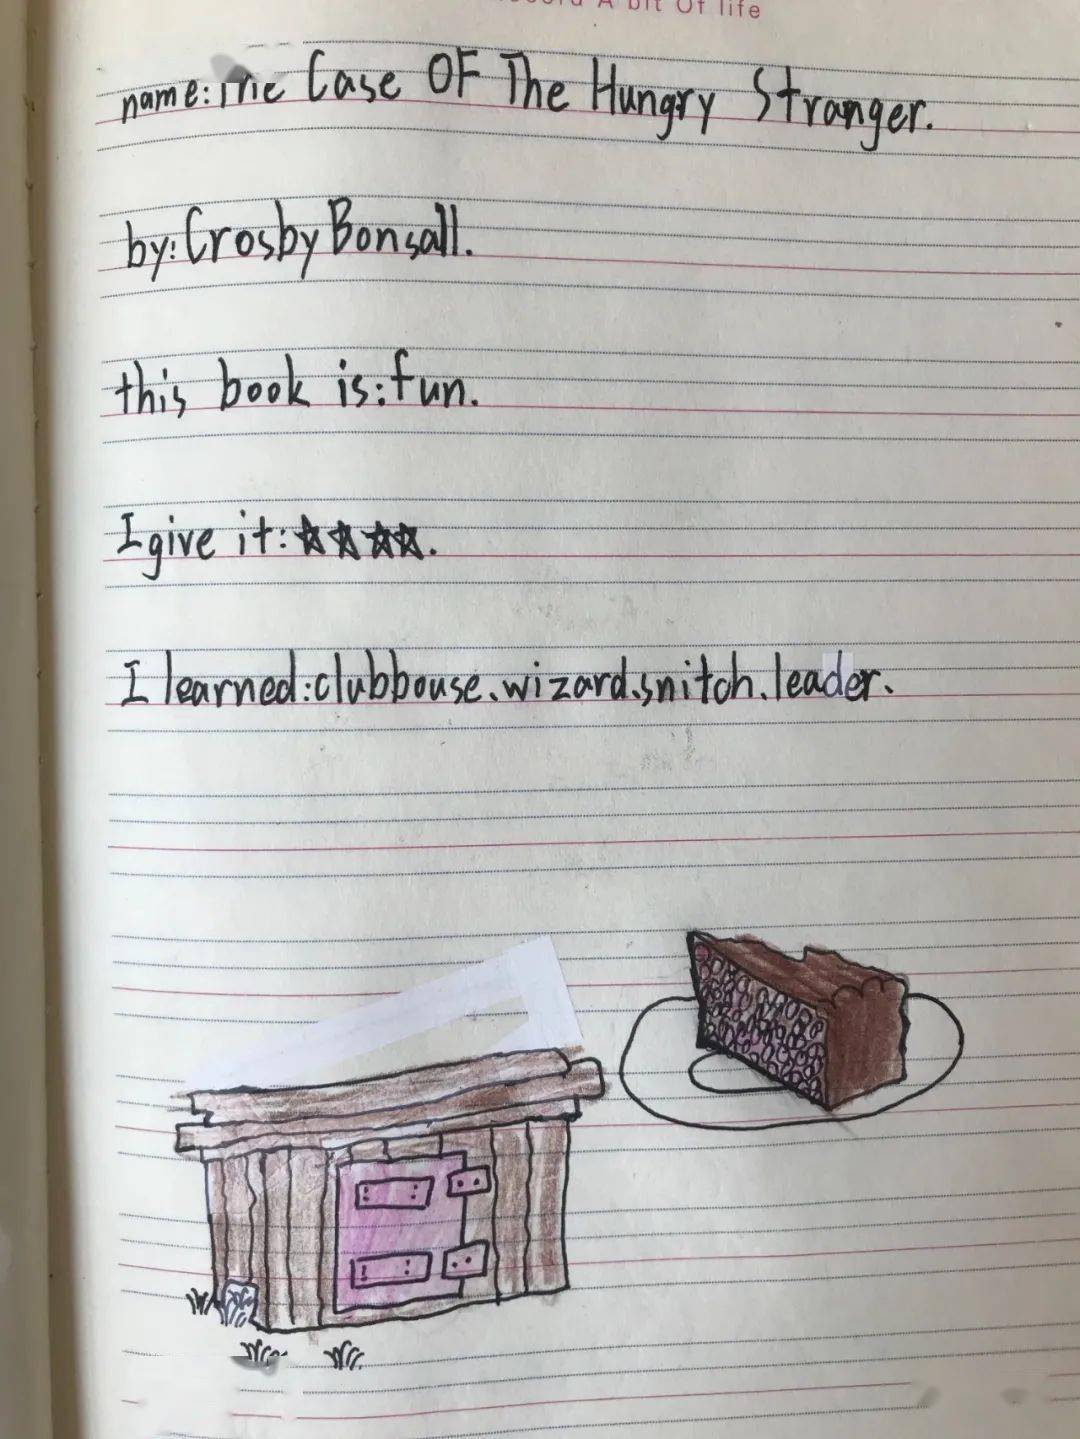 A bit Of life
name: The Case OF The Hungry Stranger.
by: Crosby Bonsall.
this book is: fun.
I give it: ☆☆☆☆.
I learned: clubbouse. wizard. snitch. leader.